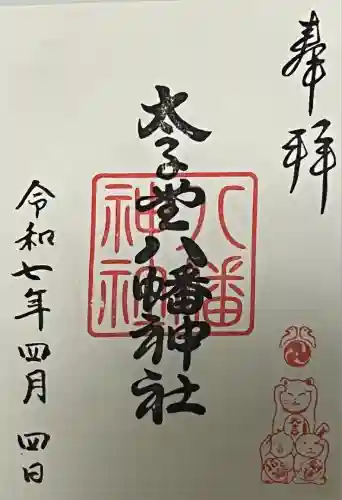 奉拝
太子堂八幡神社
八幡
神社
令和七年四月四日